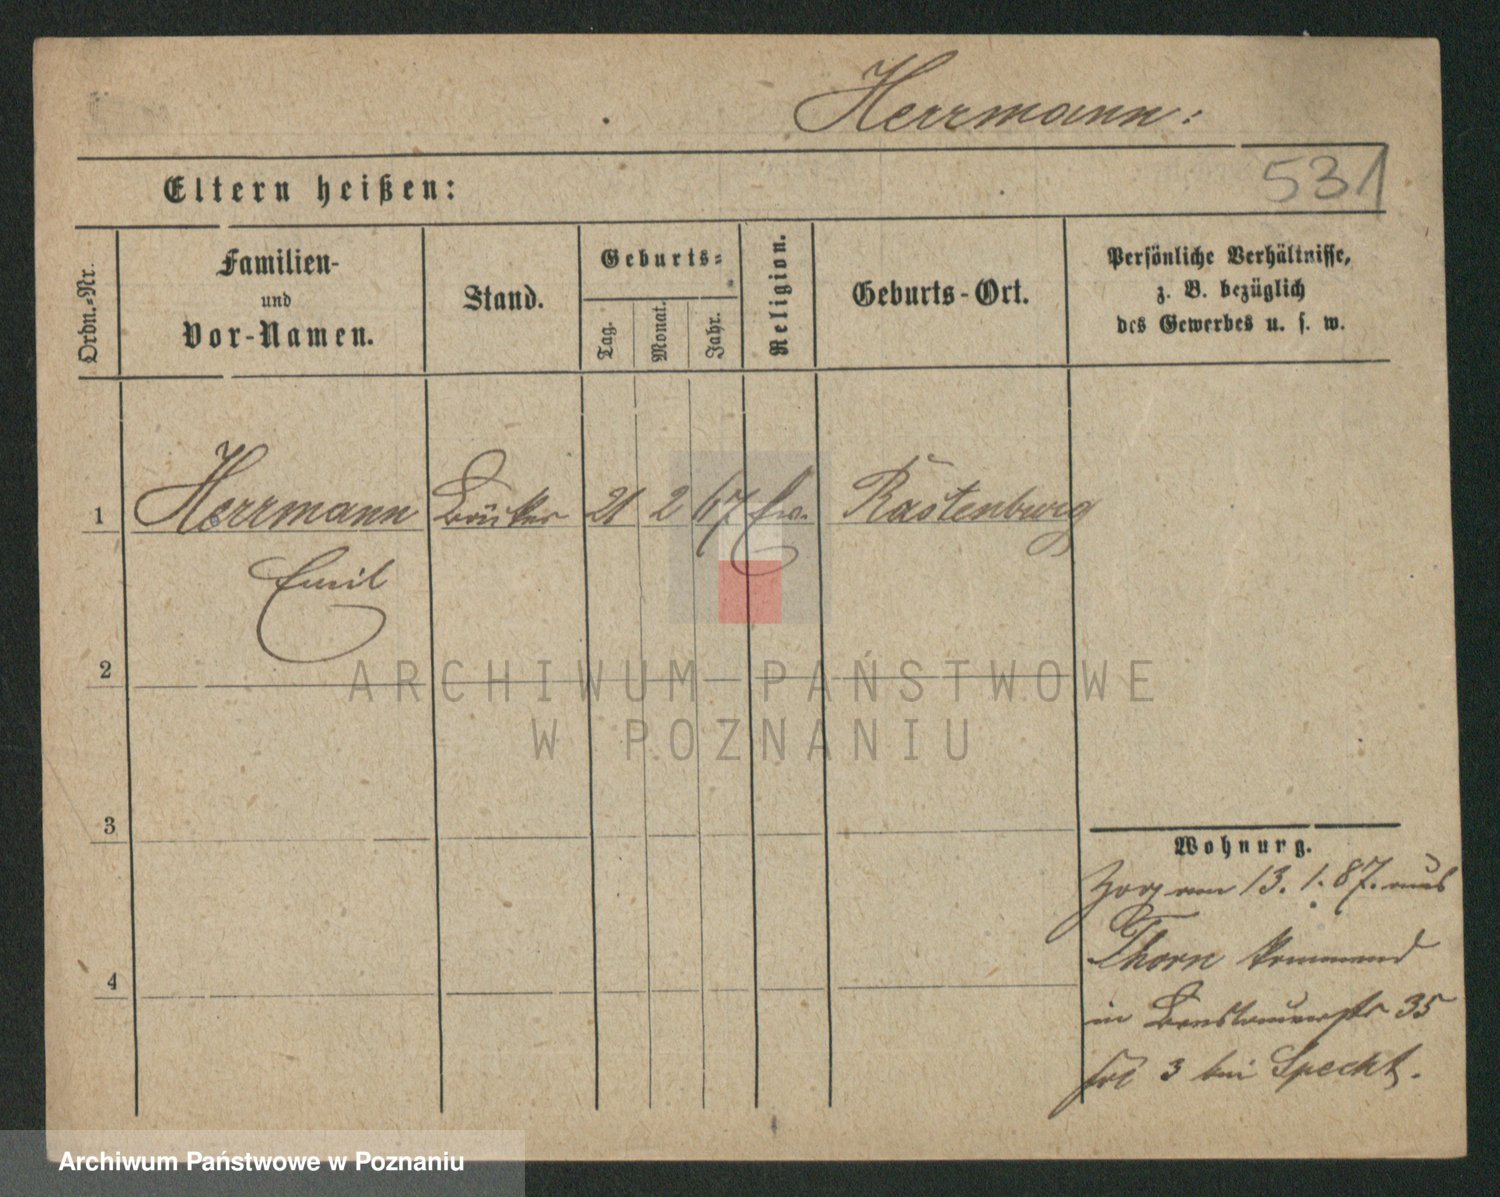 Herrmann:
531
Eltern heißen:
Ordn.=Nr.
Familien-
und
Vor-Namen.
Stand.
Geburts=
Tag.
Monat.
Jahr.
Religion.
Geburts-Ort.
Persönliche Verhältnisse,
z. B. bezüglich
des Gewerbes u. s. w.
1 Herrmann 21 2 67 Ev. Rastenburg
Emil
2
ARCHIWUM PAŃSTWOWE
W POZNANIU
3
Wohnung.
Zog am 13. 1. 87. aus
Thorn kommend
4
in 35
3 bei Specht.
Archiwum Państwowe w Poznaniu